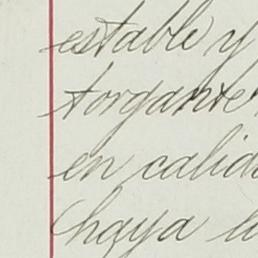 estable y
torgante
en calid
haya l